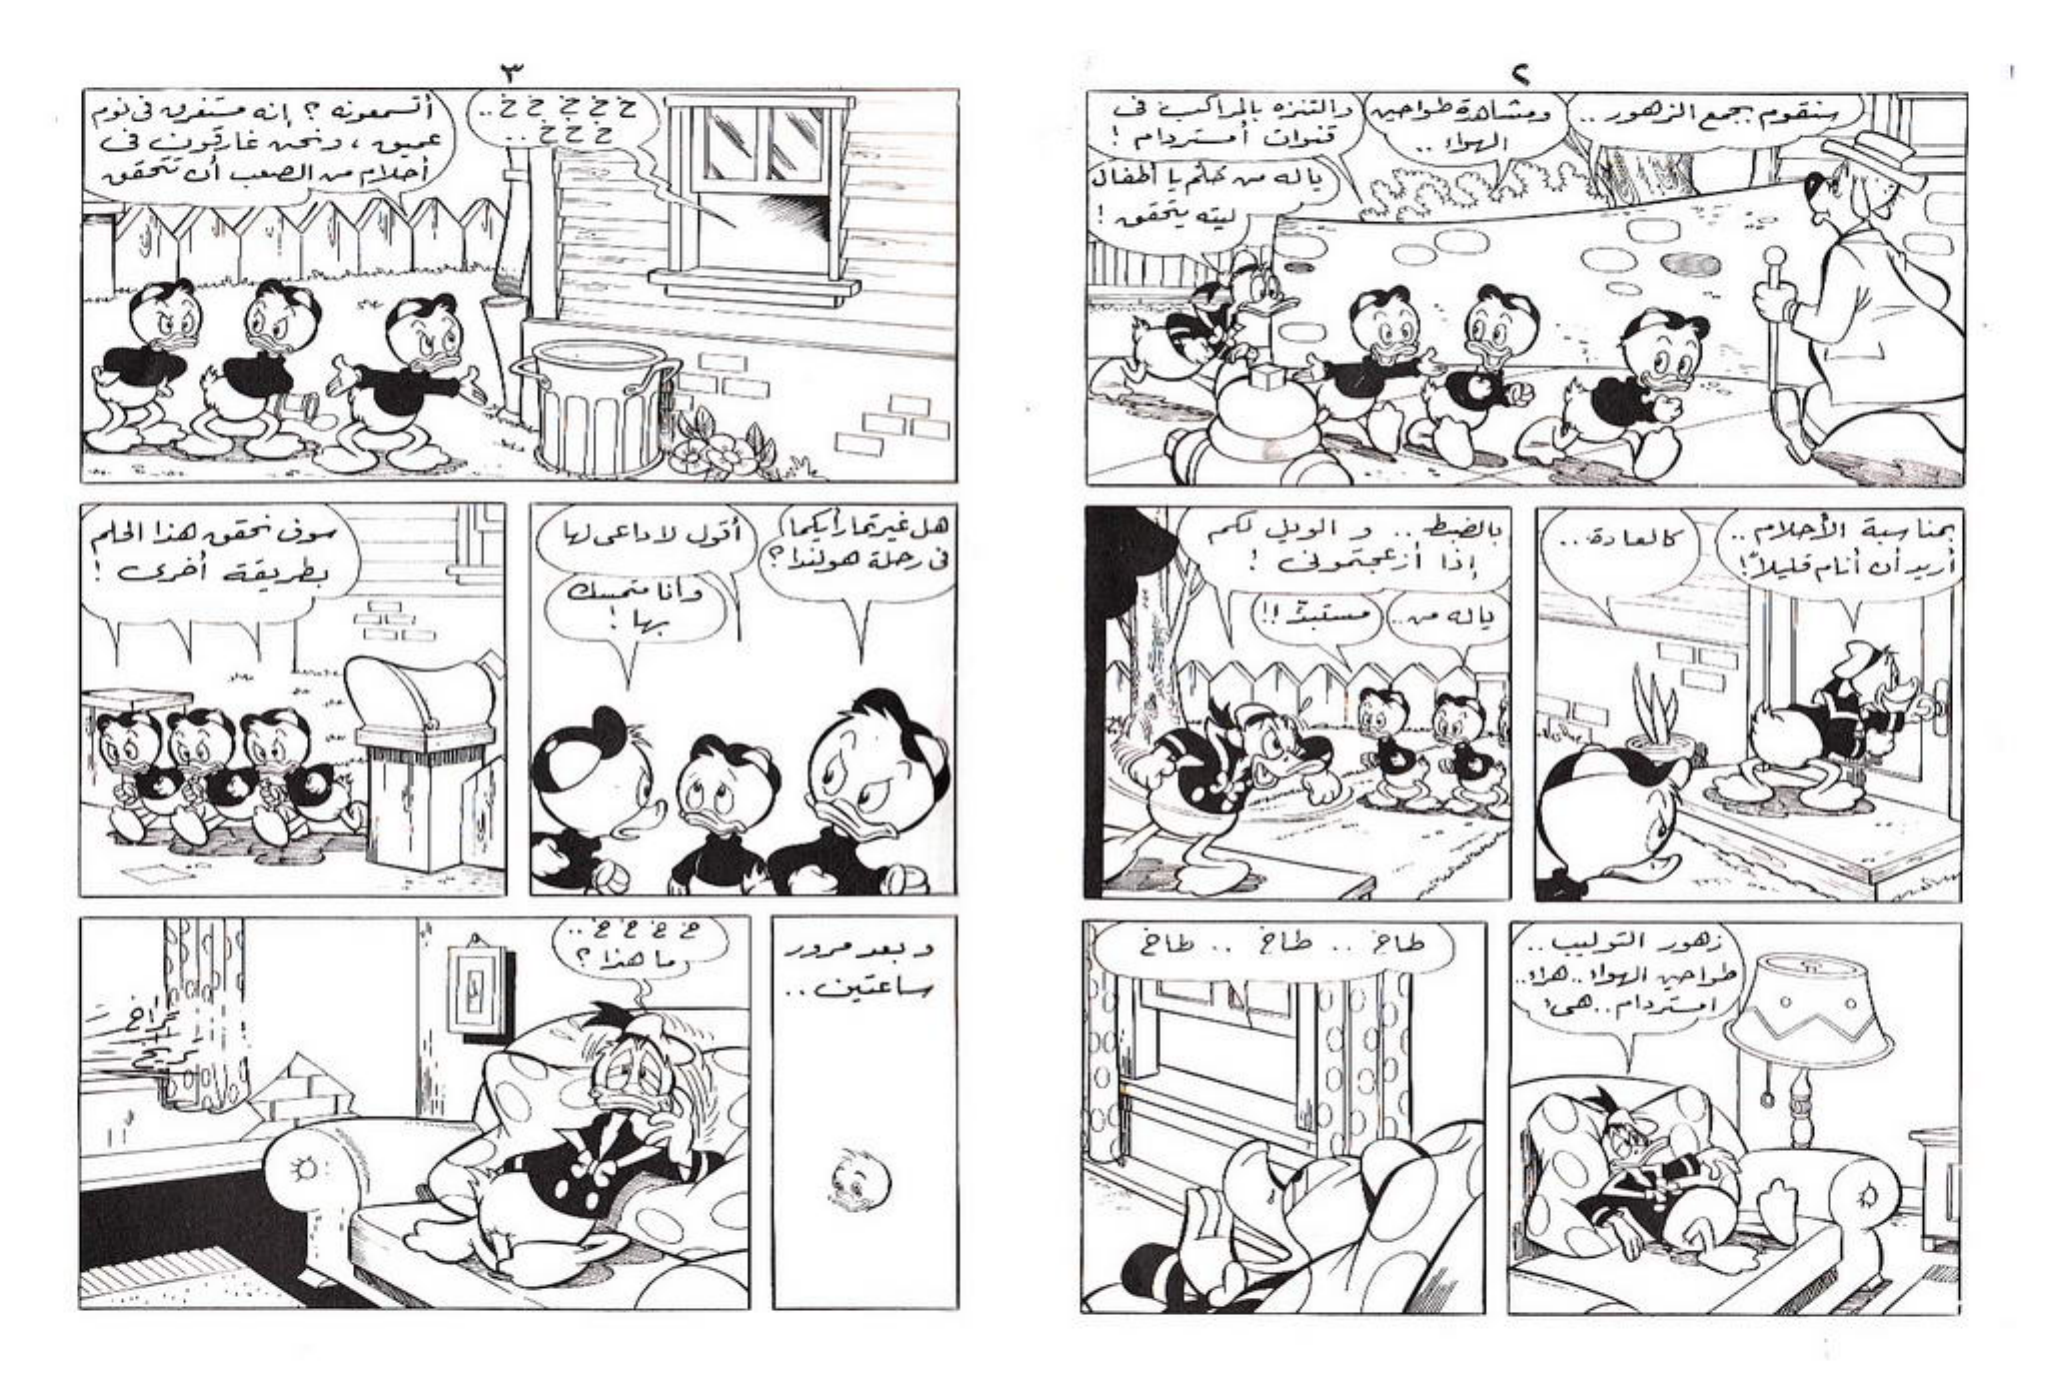 ٢
سنقوم بجمع الزهور ..
ومشاهدة طواحين
الهواء ..
والتنزه بالمراكب فى
قنوات أمستردام !
ياله من حلم يا أطفال
ليته يتحقق !
بمناسبة الأحلام ..
أريد أن أنام قليلاً !
كالعادة ..
بالضبط .. و الويل لكم
إذا أزعجتمونى !
ياله من ..
مستبدّ !!
زهور التوليب ..
طواحين الهواء .. هراء ..
امستردام .. هىء
طاخ .. طاخ .. طاخ
٣
خ خ خ خ خ ..
خ خ خ ..
أتسمعونه ؟ إنه مستغرق فى نوم
عميق ، ونحن غارقون فى
أحلام من الصعب أن تتحقق
هل غيرتما رأيكما
فى رحلة هولندا ؟
أقول لا داعى لها
وأنا متمسك
بها !
سوف نحقق هذا الحلم
بطريقة أخرى !
و بعد مرور
ساعتين ..
خ خ خ خ ..
ما هذا ؟